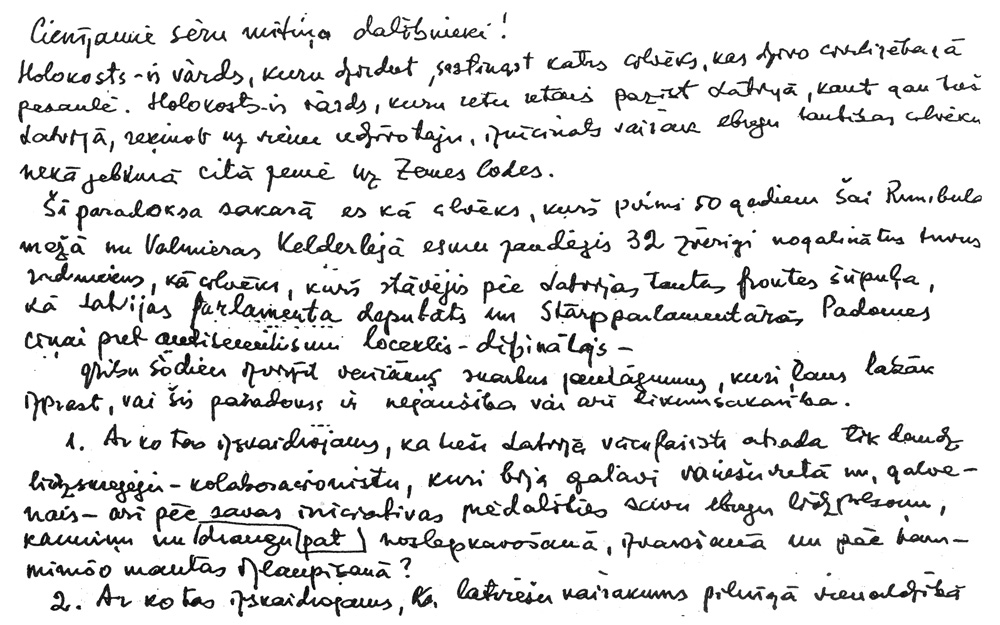 Cienījamie sēru mītiņa dalībnieki!
Holokosts - ir vārds, kuru dzirdot, sastingst katrs cilvēks, kas dzīvo civilizētajā
pasaulē. Holokosts - ir vārds, kuru retu retais pazīst Latvijā, kaut gan tieši
Latvijā, rēķinot uz vienu iedzīvotāju, iznīcināts vairāk ebreju tautības cilvēku
nekā jebkurā citā zemē uz Zemes lodes.
Šī paradoksa sakarā es kā cilvēks, kurš pirms 50 gadiem šai Rumbulas
mežā un Valmieras Ķelderlejā esmu zaudējis 32 zvērīgi nogalinātus tuvus
radiniekus, kā cilvēks, kurš stāvējis pēc Latvijas Tautas frontes šūpuļa,
kā Latvijas Parlamenta deputāts un Starpparlamentārās Padomes
cīņai pret antisemītismu loceklis - dibinātājs -
gribu šodien izvirzīt vairākus skarbus jautājumus, kuri ļaus labāk
izprast, vai šis paradokss ir nejaušība vai arī likumsakarība.
1. Ar ko tas izskaidrojams, ka tieši Latvijā vācu fašisti atrada tik daudz
līdzskrējēju - kolaboracionistu, kuri bija gatavi vāciešu vietā un, galve-
nais - arī pēc savas iniciatīvas piedalīties savu ebreju līdzpilsoņu,
kaimiņu un draugu pat noslepkavošanā, izvarošanā un pēc tam -
mirušo mantas izlaupīšanā?
2. Ar ko tas izskaidrojams, ka latviešu vairākums pilnīgā vienaldzībā